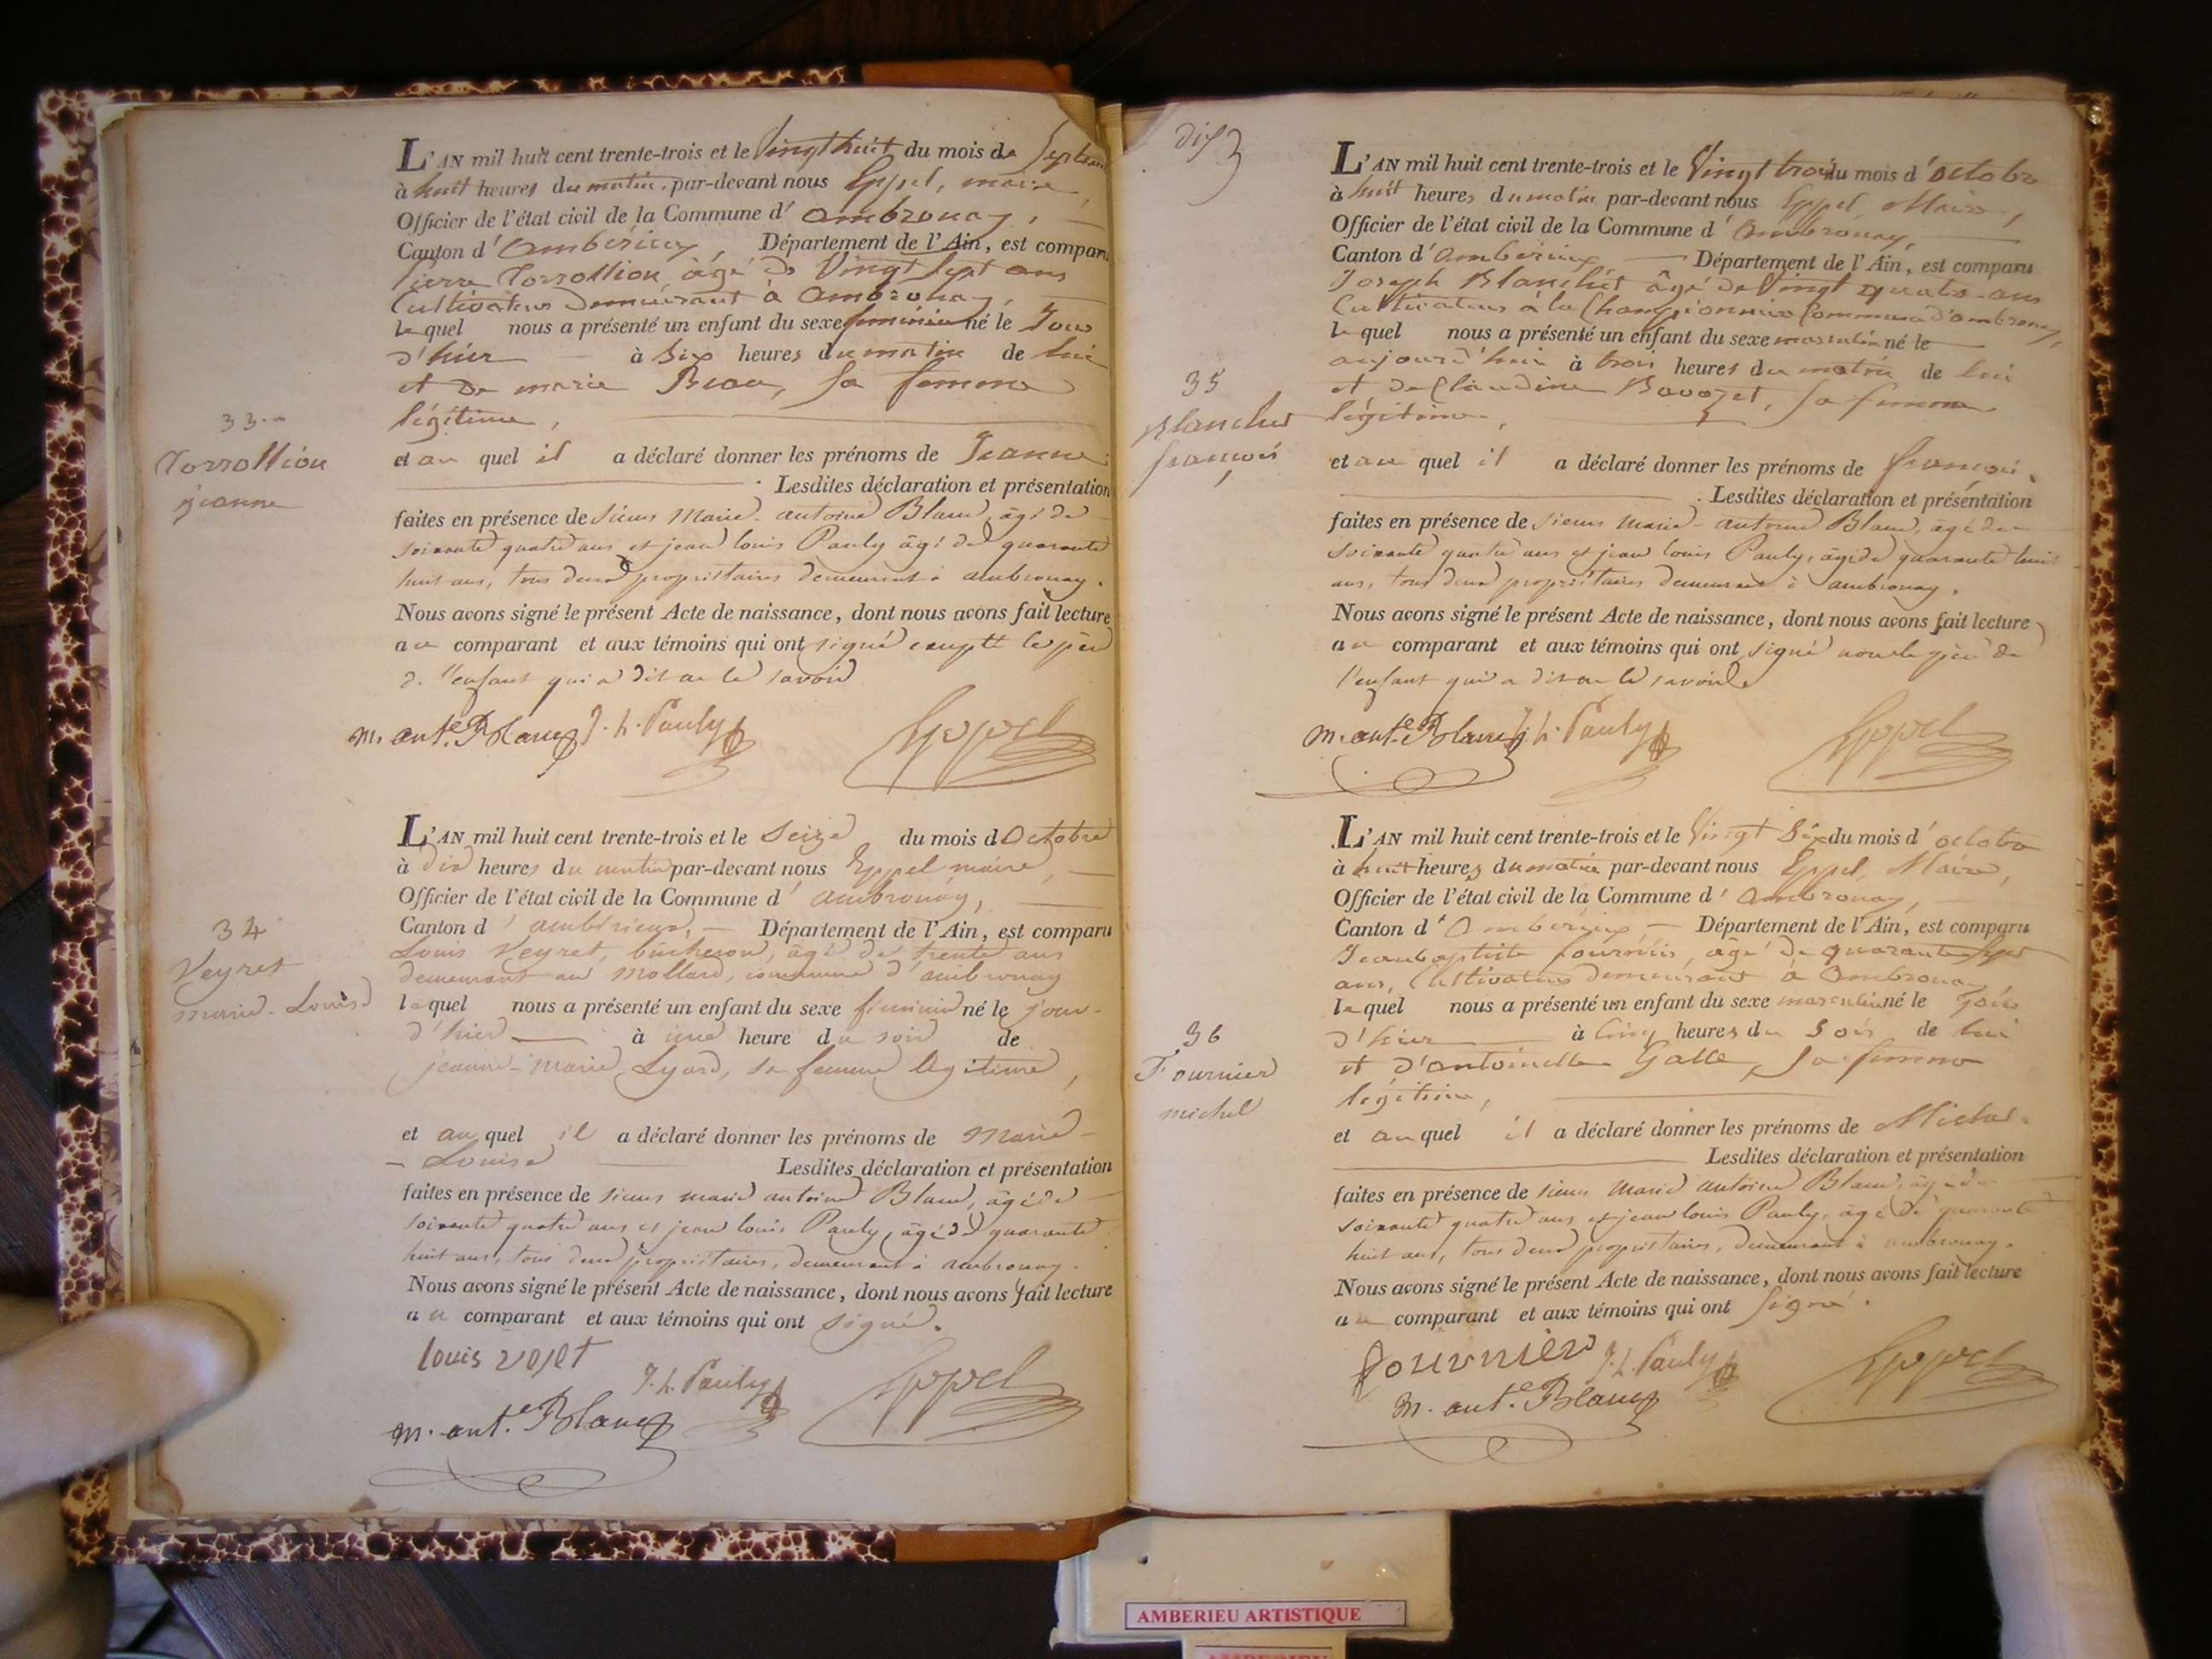 L'AN mil huit cent trente-trois et le Vingt huit du mois de Septembre
à huit heures du matin, par-devant nous Eppel, maire,
Officier de l'état civil de la Commune d'ambronay,
Canton d'ambérieux, Département de l'Ain, est comparu
Pierre Torrollion âgé de Vingt Sept ans
Cultivateur Demeurant à Ambronay,
lequel nous a présenté un enfant du sexe féminin né le Jour
d'hier à Six heures du matin de lui
et de marie, Sa femme
légitime,
33
Torrollion
jeanne
et au quel il a déclaré donner les prénoms de Jeanne
Lesdites déclaration et présentation
faites en présence de sieurs Marie-antoine Blanc, âgé de
soixante quatre ans et jean louis Pauly âgé de quarante
huit ans, tous deux propriétaires demeurant à ambronay.
Nous avons signé le présent Acte de naissance, dont nous avons fait lecture
au comparant et aux témoins qui ont signé excepté le père
de l'enfant qui a dit ne le savoir
m. ant.e Blanc J. L. Pauly Eppel
L'AN mil huit cent trente-trois et le Seize du mois d'Octobre
à dix heures du matin par-devant nous Eppel maire,
Officier de l'état civil de la Commune d'ambronay,
Canton d'ambérieux, Département de l'Ain, est comparu
Louis Veyret, bûcheron, âgé de trente ans
demeurant au Mollard, commune d'ambronay
34
Veyret
marie-Louise
lequel nous a présenté un enfant du sexe féminin né le jour
d'hier à une heure du soir de
jeanne-marie Lyard, sa femme légitime,
et au quel il a déclaré donner les prénoms de Marie-
Louise Lesdites déclaration et présentation
faites en présence de sieurs marie antoine Blanc, âgé de
soixante quatre ans et jean louis Pauly, âgé de quarante
huit ans, tous deux propriétaires, demeurant à ambronay.
Nous avons signé le présent Acte de naissance, dont nous avons fait lecture
au comparant et aux témoins qui ont signé.
louis veyet
J. L. Pauly Eppel
m. ant.e Blanc
L'AN mil huit cent trente-trois et le Vingt trois du mois d'octobre
à huit heures du matin par-devant nous Eppel, Maire,
Officier de l'état civil de la Commune d'Ambronay,
Canton d'ambérieux Département de l'Ain, est comparu
Joseph Blanchet âgé de Vingt quatre ans
Cultivateur à la Commune d'ambronay,
lequel nous a présenté un enfant du sexe masculin né le
aujourd'hui à trois heures du matin de lui
et de Claudine Bavozet, Sa femme
légitime,
35
Blanchet
françois
et au quel il a déclaré donner les prénoms de françois.
Lesdites déclaration et présentation
faites en présence de sieurs Marie-antoine Blanc, âgé de
soixante quatre ans et jean louis Pauly, âgé de quarante huit
ans, tous deux propriétaires demeurant à ambronay.
Nous avons signé le présent Acte de naissance, dont nous avons fait lecture
au comparant et aux témoins qui ont signé non le père de
l'enfant qui a dit ne le savoir
m. ant.e Blanc J. L. Pauly Eppel
L'AN mil huit cent trente-trois et le Vingt Six du mois d'octobre
à huit heures du matin par-devant nous Eppel, Maire,
Officier de l'état civil de la Commune d'Ambronay,
Canton d'Ambérieux Département de l'Ain, est comparu
Jean baptiste fournier, âgé de quarante Sept
ans, Cultivateur demeurant à Ambronay
lequel nous a présenté un enfant du sexe masculin né le Jour
d'hier à Cinq heures du Soir de lui
et d'antoinette Galle, Sa femme
légitime,
36
Fournier
michel
et au quel il a déclaré donner les prénoms de Michel.
Lesdites déclaration et présentation
faites en présence de sieurs Marie antoine Blanc, âgé de
soixante quatre ans et jean louis Pauly, âgé de quarante
huit ans, tous deux propriétaires, demeurant à ambronay.
Nous avons signé le présent Acte de naissance, dont nous avons fait lecture
au comparant et aux témoins qui ont Signé.
fournier J. L. Pauly Eppel
m. ant.e Blanc
AMBERIEU ARTISTIQUE